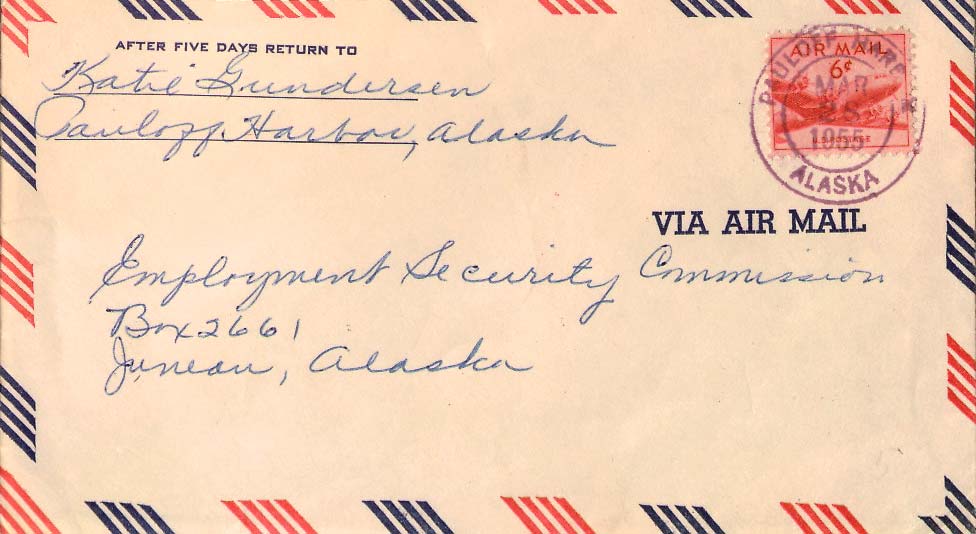 AFTER FIVE DAYS RETURN TO
Katie Gundersen
Pauloff Harbor, Alaska
AIR MAIL
6¢
U.S. POSTAGE
PAULOFF HARBOR
MAR
1955
ALASKA
VIA AIR MAIL
Employment Security Commission
Box 2661
Juneau, Alaska